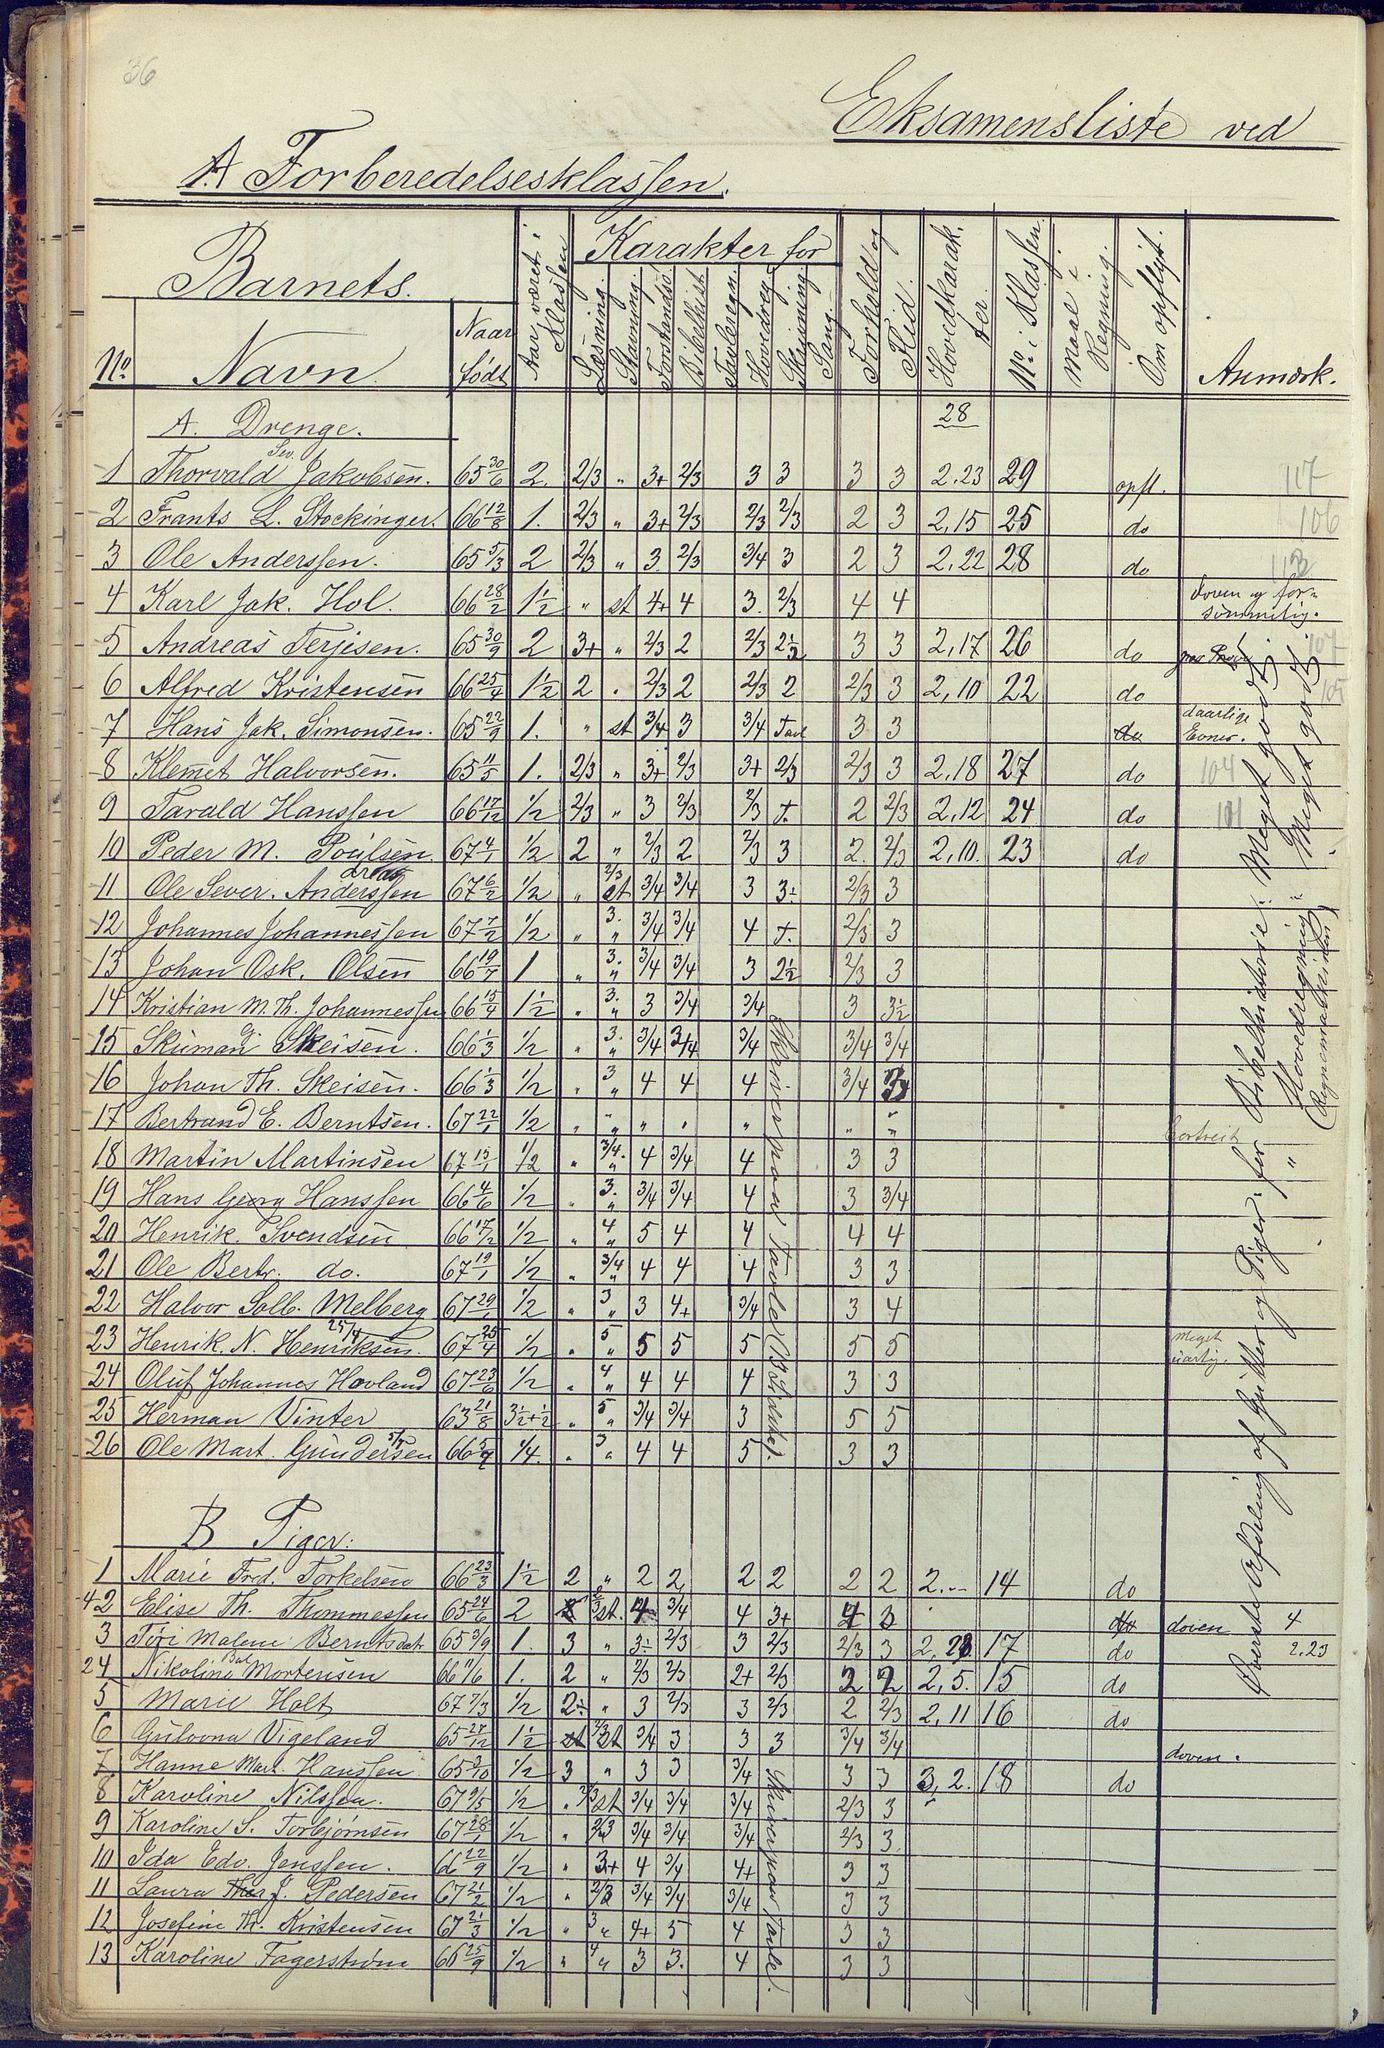 36
Eksamensliste ved
A Forberedelsesklassen.
Barnets.
Karakter for
No Navn. Naar født Aar været i Klassen Læsning. Stavning. Forstandsø. Bibelhist. Tavleregn. Hovedreg. Skrivning Sang. Forhold og Flid. Hovedkarakter No i Klassen. Maal i Regning. Om opflyt. Anmærk.
A. Drenge. 28
1 Thorvald Sev. Jakobsen. 65 30/6 2. 2/3 " 3+ 2/3 3 3 3 3 2,23 29 opfl. 117
2 Frants L. Stockinger. 66 12/8 1. 2/3 " 3+ 2/3 2/3 2/3 2 3 2,15 25 do 106
3 Ole Anderssen. 65 5/3 2 2/3 " 3 2/3 3/4 3 2 3 2,22 28 do
4 Karl Jak. Hol. 66 28/2 1½ " st 4+ 4 3. 2/3 4 4 doven og forsømmelig.
5 Andreas Terjesen. 65 30/9 2 3+ " 2/3 2 2/3 2½ 3 3 2,17 26 do 107
6 Alfred Kristensen 66 25/4 1½ 2 " 2/3 2 2/3 2 2/3 3 2,10 22 do 105
7 Hans Jak. Simonsen. 65 22/9 1. " st 3/4 3 3/4 Tavl 3 3 do daarlige Evner.
8 Klemet Halvorsen. 65 11/5 1. 2/3 " 3+ 2/3 3+ 2/3 2/3 3 2,18 27 do 104
9 Tarald Hanssen 66 17/12 ½ 2/3 " 3 2/3 2/3 t. 2 2/3 2,12 24 do 101
10 Peder M. Poulsen. 67 4/1 ½ 2 " 2/3 2 2/3 3 2. 2/3 2,10. 23 do
11 Ole Sever. Anderssen 67 6/2 ½ " 2/3 st 3/4 3/4 3 3÷ 2/3 3
12 Johannes Johannessen 67 7/2 ½ " 3. " 3/4 3/4 4 t. 2/3 3
13 Johan Osk. Olsen 66 19/7 1 " 3. " 3/4 3/4 3 2½ 2/3 3
14 Kristian M. Th. Johannessen 66 15/4 1½ " 3. " 3 3/4 3/4 3 3½
15 Skuman G Skeisen. 66 1/3 ½ " 3. " 3/4 3/4 3/4 3/4 3/4
16 Johan Th. Skeisen. 66 1/3 ½ " 3 " 4 4 4 3/4 3
17 Bertrand E. Berntsen. 67 22/1 ½ " " " " " " " " bortreist
18 Martin Martinsen 67 15/1 ½ " 3/4. " 4 3/4 4 3 3
19 Hans Georg Hanssen 66 4/6 ½ " 3. " 3/4 3/4 4 3 3/4
20 Henrik Svendsen 66 17/2 ½ " 4 " 5 4 4 4 4
21 Ole Bertr. do. 67 19/1 ½ " 3/4 " 4 4 4 3 3
22 Halvor Solb. Melberg 67 29/1 ½ " 3 " 3 4+ 3/4 3 4
23 Henrik N. Henriksen. 25/4 67 25/4 ½ " 5 " 5 5 5 5 5 meget uartig.
24 Oluf Johannes Hovland 67 23/6 ½ " 4 " 4 4 4 3 3
25 Herman Vinter 63 21/8 3½+½ " 5 " 3/4 3/4 3 5 5
26 Ole Mart. Gundersen 66 5/9 ¼. " 3 " 4 4 5 3 3
Skriver paa Tavle (Blidske).
B Piger:
1 Marie Fred. Torkelsen 66 23/3 1½ 2 " 2 2 2 2 2 2 2.-- 14 do
42 Elise Th. Thommessen 65 24/6 2 2/3 st. 4 3/4 4 3+ 4 3 do doven 4
3 Tori Malene Berntsdatr 65 3/9 1. 3 " 3÷ 2/3 3 2/3 2/3 3 2,23 17 do 2,23
24 Nikoline Bol Mortensen 66 11/6 1. 2 " 2/3 2/3 2+ 2/3 2 2 2,5. 15 do
5 Marie Holt 67 7/3 ½ 2÷ " 3 2/3 3 2/3 2 2/3 2,11 16 do
6 Gulovna Vigeland 65 27/12 1½ st 2/3 st 3/4 3 3 3 3/4 3/4 doven.
7 Hanne Mart. Hanssen 65 3/10 ½ 3 " 3 3 3/4 3 3 3,2. 18 do
8 Karoline Nilssen. 67 9/5 ½ " 2/3 st 3/4 3/4 3/4 2/3 3
9 Karoline S. Torbjørnsen 67 28/1 ½ " 2/3 3/4 3/4 3/4 2/3 3
10 Ida Edv. Jenssen. 66 22/9 ½ " 3+ 4 3/4 4+ 3 3
11 Laura Thea J. Pedersen 67 21/2 ½ " 2/3 3/4 3/4 3/4 3 3
12 Josefine Th. Kristensen 67 21/3 ½ " 3 " 4+ 5 4 3 3
13 Karoline Fagerstrøm 66 25/9 ½ " 4 " 3 3. 4 3 3
Skriver paa Tavle.
Øverste Afdeling af Gutter og Piger: for Bibelhistorie: Meget godt
" " Hovedregning: Meget godt
(Regnemaskinen)